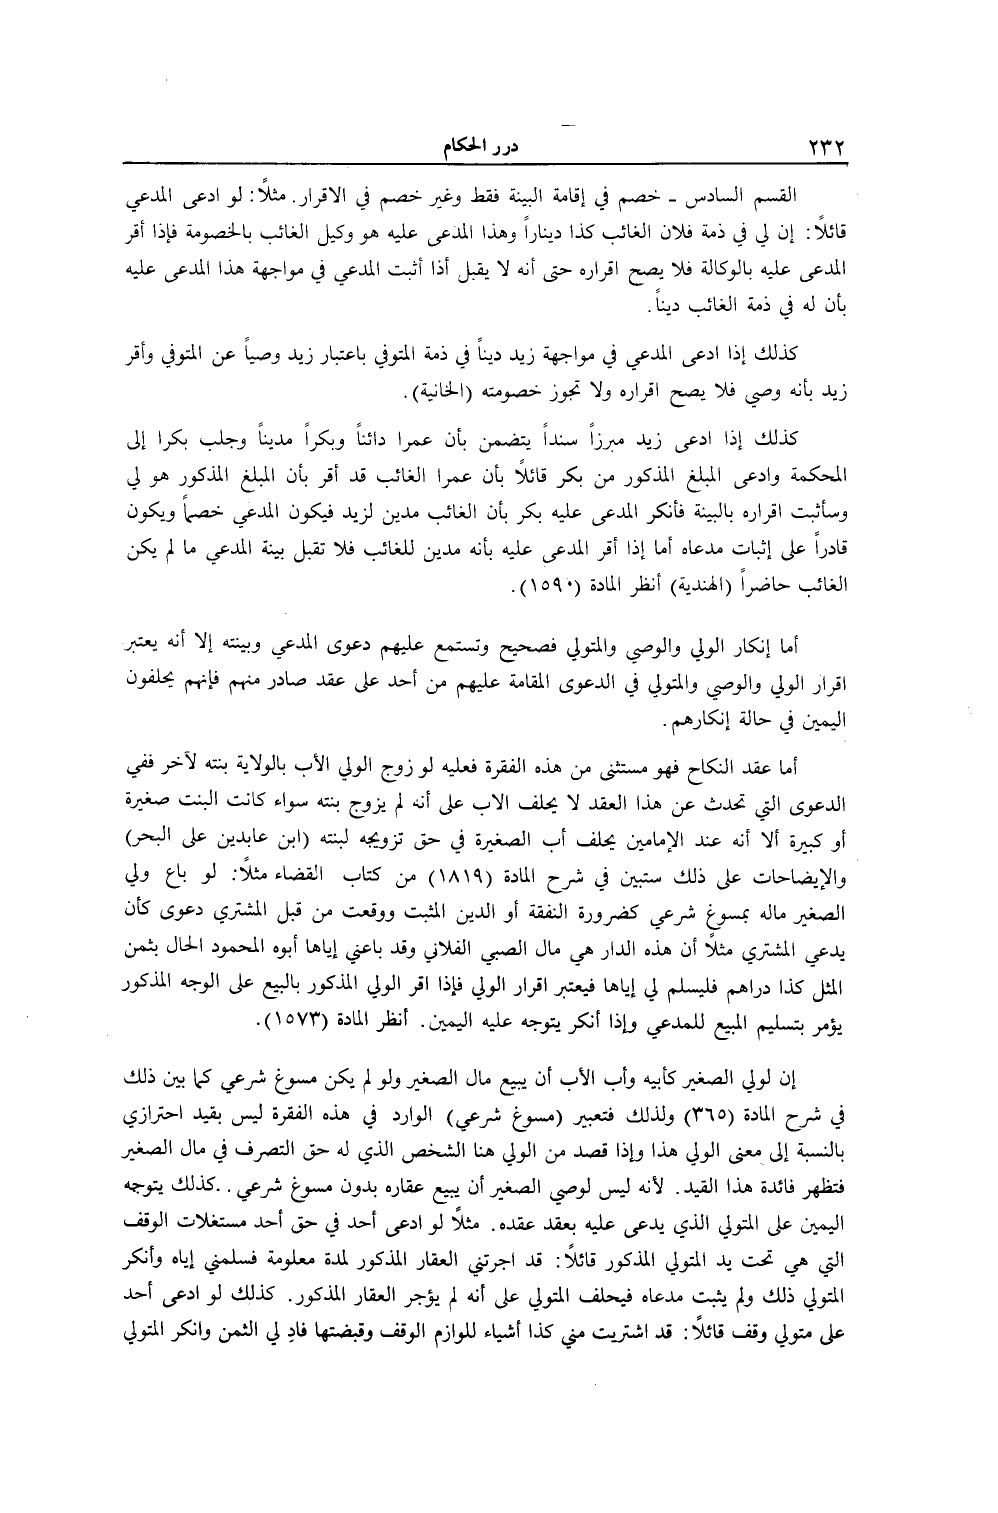 ٢٣٢
درر الحكام
القسم السادس - خصم في إقامة البينة فقط وغير خصم في الاقرار. مثلاً: لو ادعى المدعي
قائلاً: إن لي في ذمة فلان الغائب كذا ديناراً وهذا المدعى عليه هو وكيل الغائب بالخصومة فإذا أقر
المدعى عليه بالوكالة فلا يصح اقراره حتى أنه لا يقبل أذا أثبت المدعي في مواجهة هذا المدعى عليه
بأن له في ذمة الغائب ديناً.
كذلك إذا ادعى المدعي في مواجهة زيد ديناً في ذمة المتوفي باعتبار زيد وصياً عن المتوفي وأقر
زيد بأنه وصي فلا يصح اقراره ولا تجوز خصومته (الخانية).
كذلك إذا ادعى زيد مبرزاً سنداً يتضمن بأن عمرا دائناً وبكراً مديناً وجلب بكرا إلى
المحكمة وادعى المبلغ المذكور من بكر قائلاً بأن عمرا الغائب قد أقر بأن المبلغ المذكور هو لي
وسأثبت اقراره بالبينة فأنكر المدعى عليه بكر بأن الغائب مدين لزيد فيكون المدعي خصماً ويكون
قادراً على إثبات مدعاه أما إذا أقر المدعى عليه بأنه مدين للغائب فلا تقبل بينة المدعي ما لم يكن
الغائب حاضراً (الهندية) أنظر المادة (١٥٩٠).
أما إنكار الولي والوصي والمتولي فصحيح وتستمع عليهم دعوى المدعي وبينته إلا أنه يعتبر
اقرار الولي والوصي والمتولي في الدعوى المقامة عليهم من أحد على عقد صادر منهم فإنهم يحلفون
اليمين في حالة إنكارهم.
أما عقد النكاح فهو مستثنى من هذه الفقرة فعليه لو زوج الولي الأب بالولاية بنته لآخر ففي
الدعوى التي تحدث عن هذا العقد لا يحلف الاب على أنه لم يزوج بنته سواء كانت البنت صغيرة
أو كبيرة ألا أنه عند الإمامين يحلف أب الصغيرة في حق تزويجه لبنته (ابن عابدين على البحر)
والإيضاحات على ذلك ستبين في شرح المادة (١٨١٩) من كتاب القضاء مثلاً: لو باع ولي
الصغير ماله بمسوغ شرعي كضرورة النفقة أو الدين المثبت ووقعت من قبل المشتري دعوى كأن
يدعي المشتري مثلاً أن هذه الدار هي مال الصبي الفلاني وقد باعني إياها أبوه المحمود الحال بثمن
المثل كذا دراهم فليسلم لي إياها فيعتبر اقرار الولي فإذا اقر الولي المذكور بالبيع على الوجه المذكور
يؤمر بتسليم المبيع للمدعي وإذا أنكر يتوجه عليه اليمين. أنظر المادة (١٥٧٣).
إن لولي الصغير كأبيه وأب الأب أن يبيع مال الصغير ولو لم يكن مسوغ شرعي كما بين ذلك
في شرح المادة (٣٦٥) ولذلك فتعبير (مسوغ شرعي) الوارد في هذه الفقرة ليس بقيد احترازي
بالنسبة إلى معنى الولي هذا وإذا قصد من الولي هنا الشخص الذي له حق التصرف في مال الصغير
فتظهر فائدة هذا القيد. لأنه ليس لوصي الصغير أن يبيع عقاره بدون مسوغ شرعي. .كذلك يتوجه
اليمين على المتولي الذي يدعى عليه بعقد عقده. مثلاً لو ادعى أحد في حق أحد مستغلات الوقف
التي هي تحت يد المتولي المذكور قائلاً: قد اجرتني العقار المذكور لمدة معلومة فسلمني إياه وأنكر
المتولي ذلك ولم يثبت مدعاه فيحلف المتولي على أنه لم يؤجر العقار المذكور. كذلك لو ادعى أحد
على متولي وقف قائلاً: قد اشتريت مني كذا أشياء للوازم الوقف وقبضتها فادِ لي الثمن وانكر المتولي